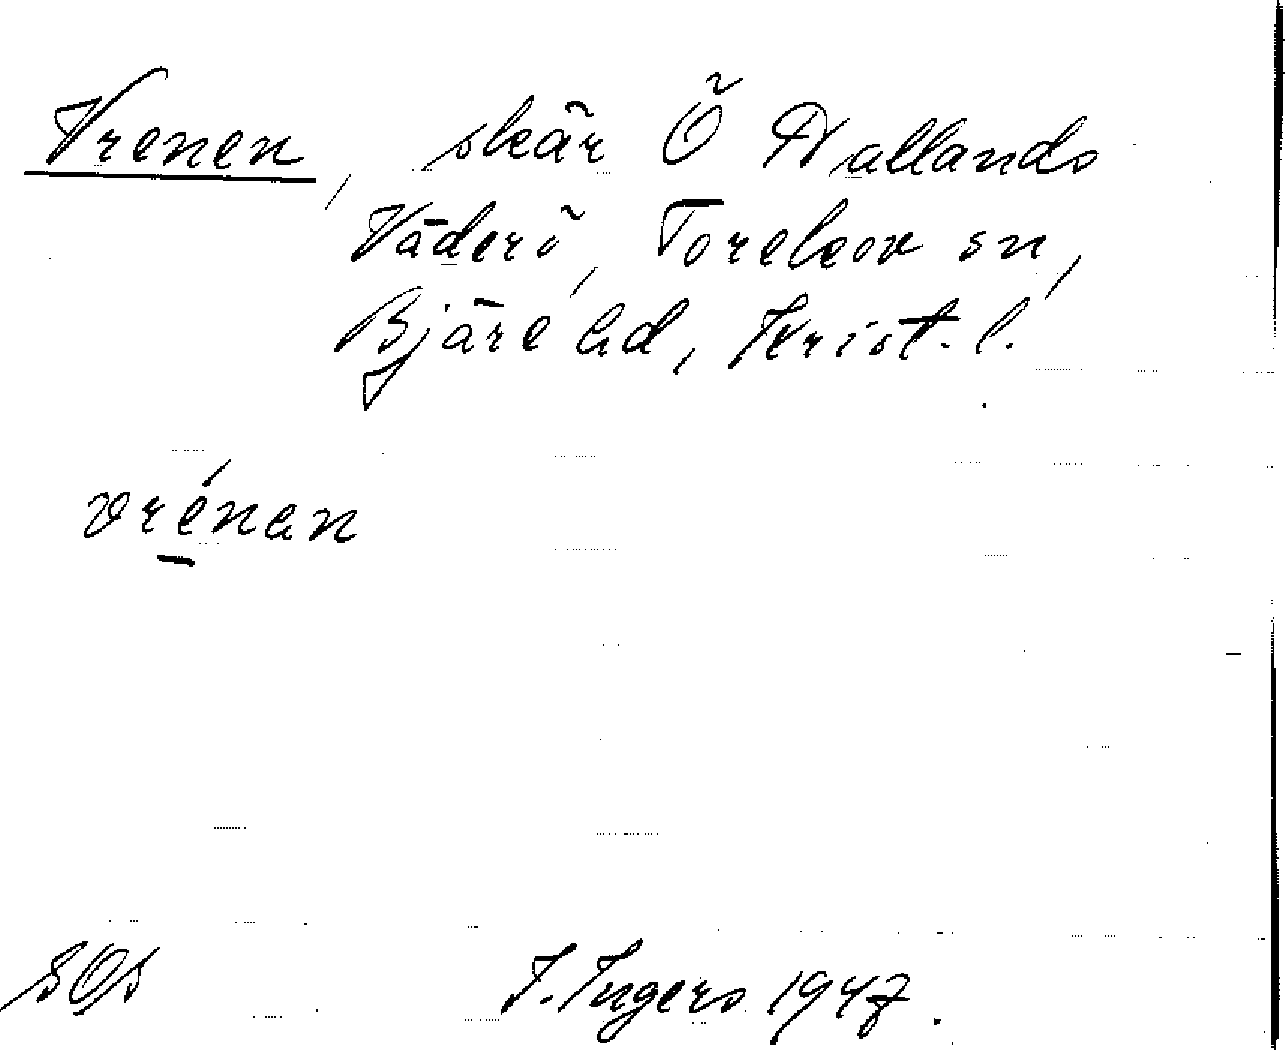 Vrenen, skär Ö Hallands
Väderö, Torekov sn,
Bjäre hd, Krist. l.
vrénan
SOs I. Ingers 1947.